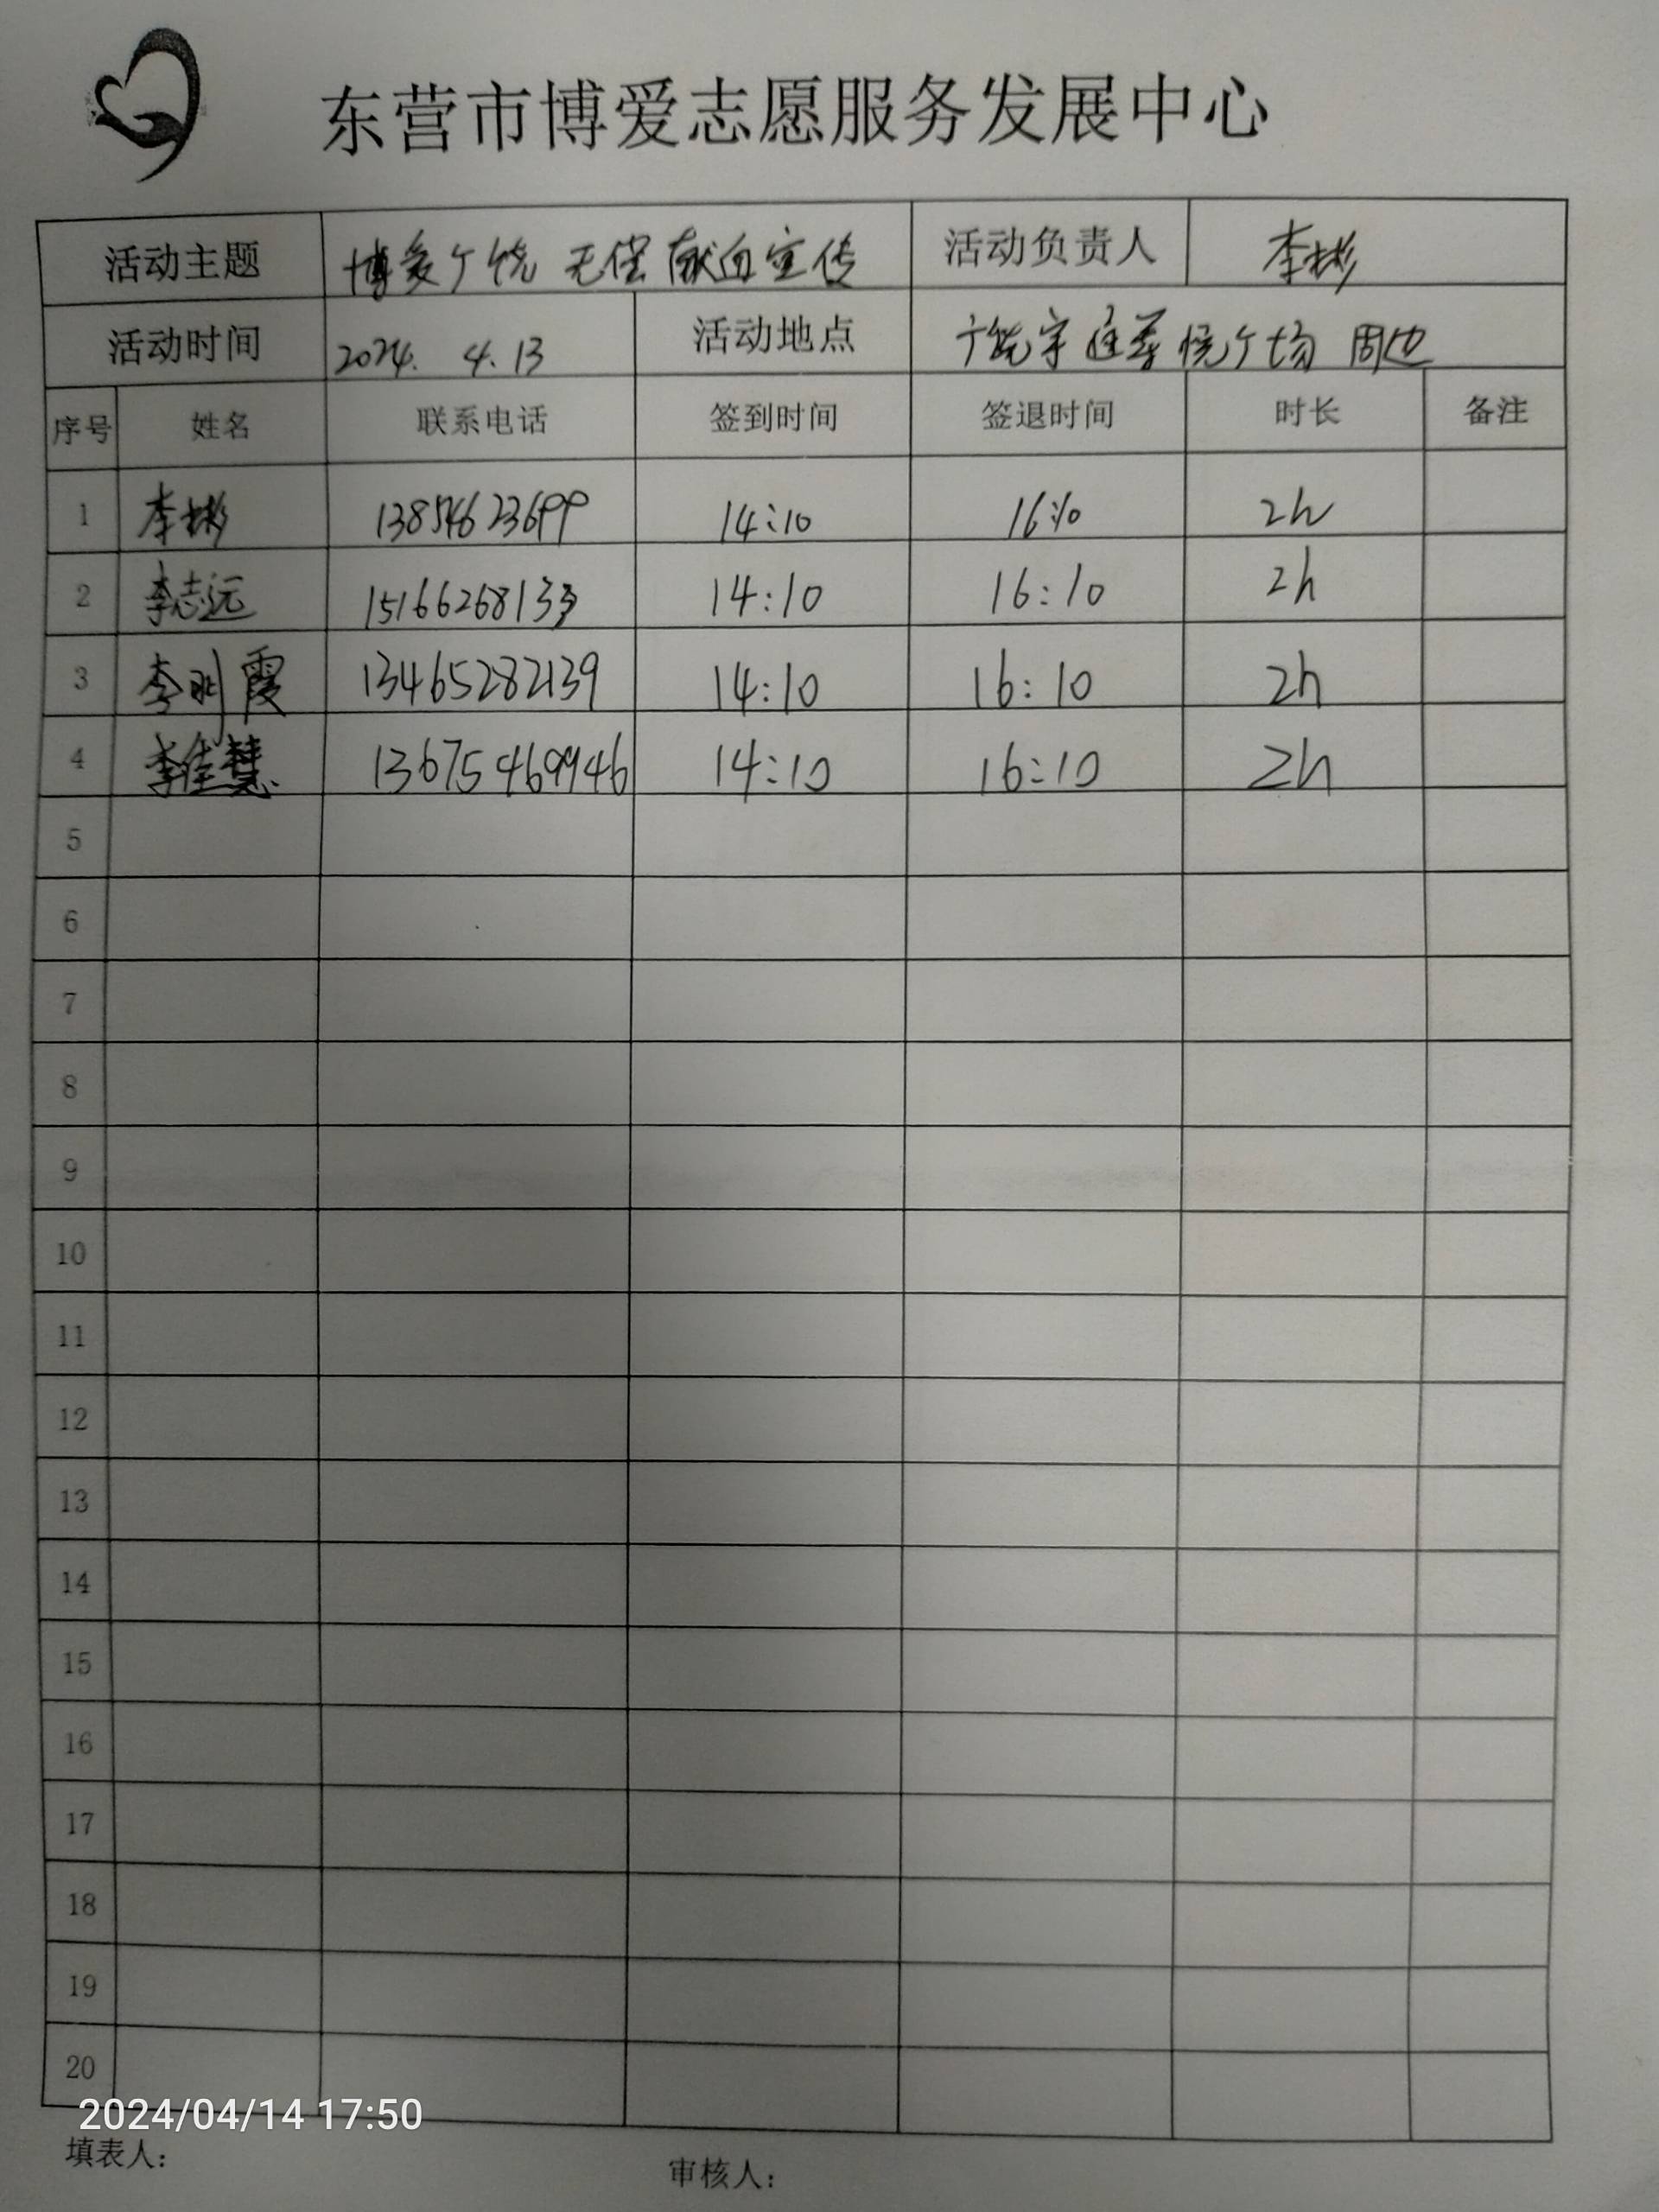 东营市博爱志愿服务发展中心
活动主题 博爱广饶 无偿献血宣传 活动负责人 李彬
活动时间 2024. 4.13 活动地点 广饶 广场 周边
序号 姓名 联系电话 签到时间 签退时间 时长 备注
1 李彬 13854623699 14:10 16:10 2h
2 李志远 15166268133 14:10 16:10 2h
3 李 霞 13465282139 14:10 16:10 2h
4 李佳慧 13675469946 14:10 16:10 2h
5
6
7
8
9
10
11
12
13
14
15
16
17
18
19
20
2024/04/14 17:50
填表人：
审核人：